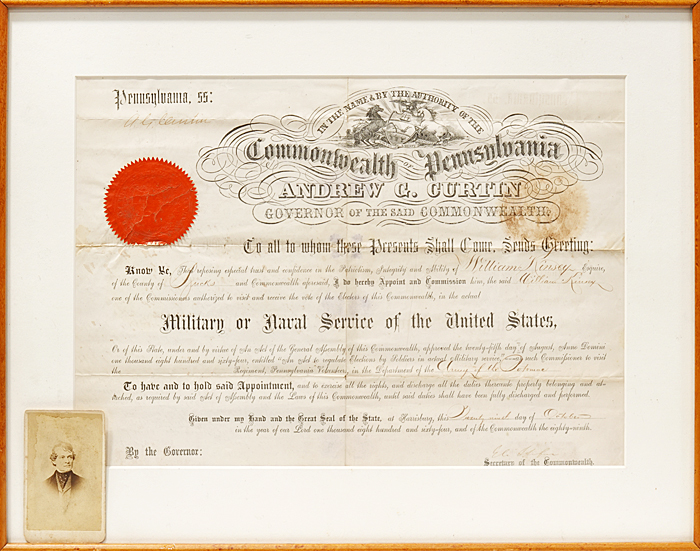 Pennsylvania, ss:
A G Curtin
IN THE NAME & BY THE AUTHORITY OF THE
Commonwealth Pennsylvania
ANDREW G. CURTIN
GOVERNOR OF THE SAID COMMONWEALTH.
To all to whom these Presents Shall Come, Sends Greeting:
Know Ye, That reposing especial trust and confidence in the Patriotism, Integrity and Ability of William Kinsey Esquire,
of the County of Bucks and Commonwealth aforesaid, I do hereby Appoint and Commission him, the said William Kinsey
one of the Commissioners authorized to visit and receive the vote of the Electors of this Commonwealth, in the actual
Military or Naval Service of the United States,
Or of this State, under and by virtue of an Act of the General Assembly of this Commonwealth, approved the twenty-fifth day of August, Anno Domini
one thousand eight hundred and sixty-four, entitled "An Act to regulate Elections by Soldiers in actual Military service," such Commissioner to visit
the Regiment, Pennsylvania Volunteers, in the Department of the Army of the
To have and to hold said Appointment, and to exercise all the rights, and discharge all the duties thereunto properly belonging and at-
tached, as required by said Act of Assembly and the Laws of this Commonwealth, until said duties shall have been fully discharged and performed.
Given under my Hand and the Great Seal of the State, at Harrisburg, this Twenty day of October
in the year of our Lord one thousand eight hundred and sixty-four, and of the Commonwealth the eighty-ninth.
By the Governor:
Eli Slifer
Secretary of the Commonwealth.